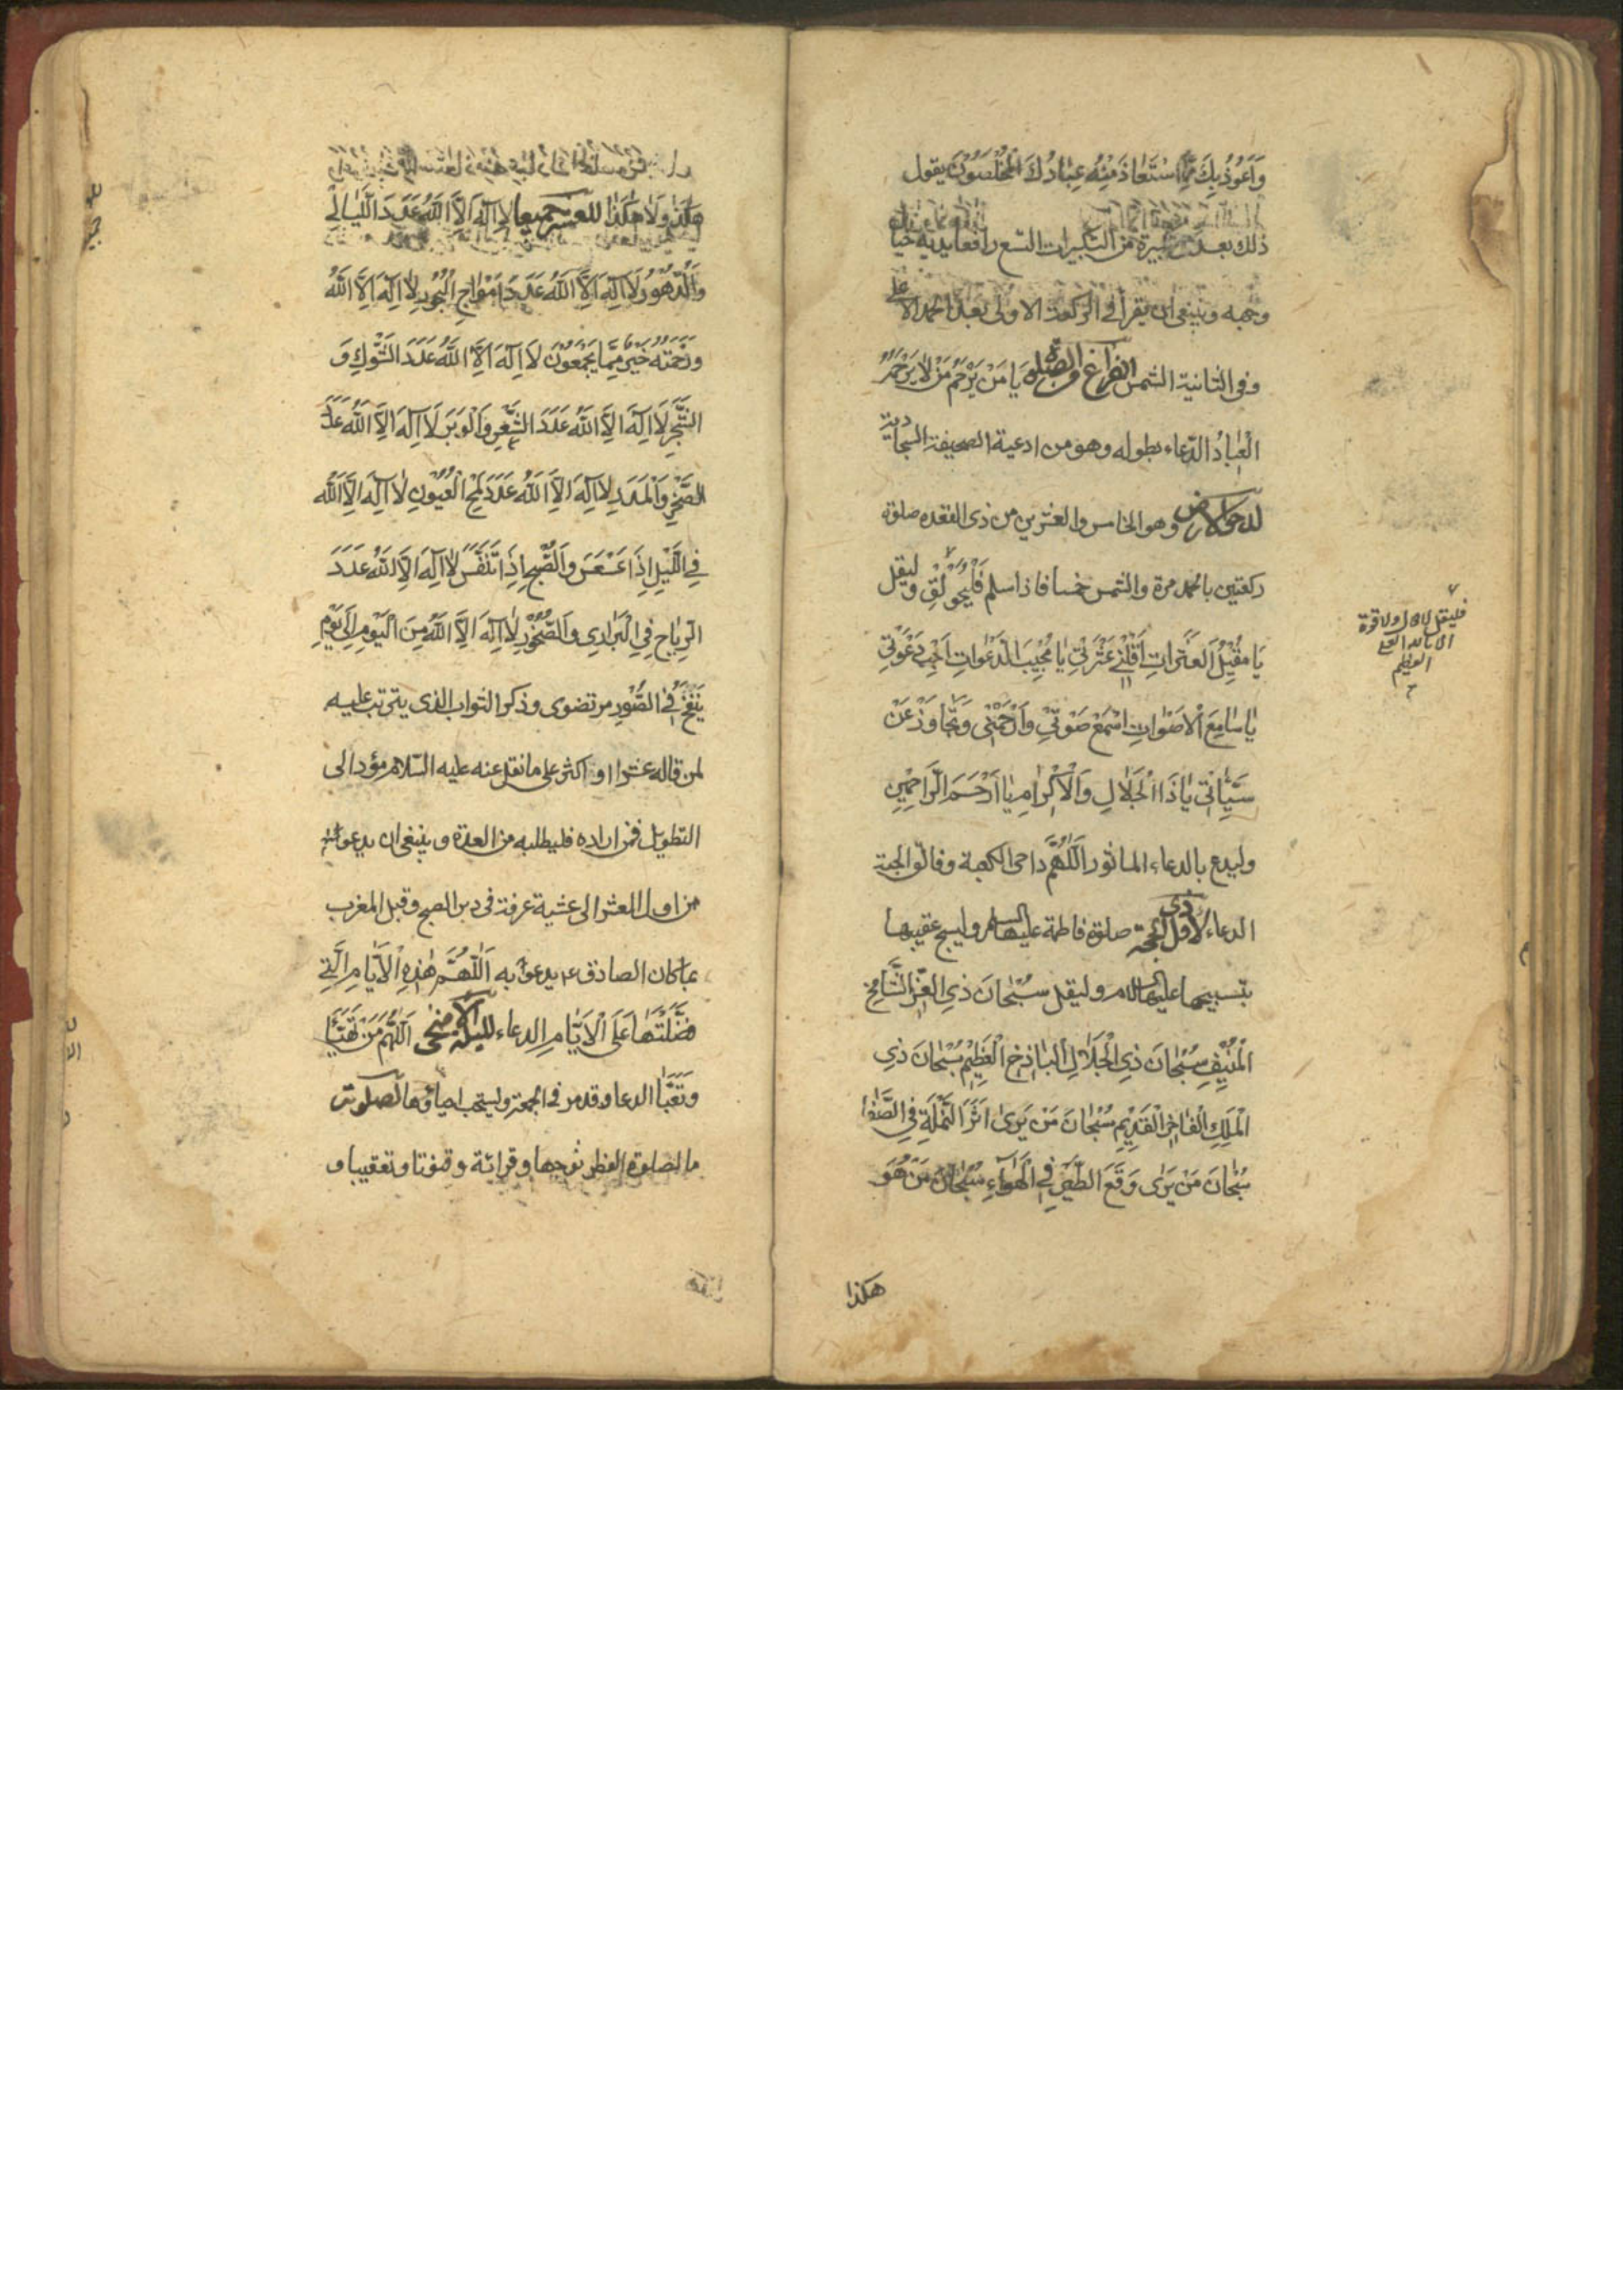 وَاَعُوْذُ بِكَ مِمَّا اسْتَعٰاذَ مِنْهُ عِبٰادُكَ الْمُخْلَصُوْنَ يقول
ذلك بعد كل تكبيرة من التكبيرات التسع رافعا يديه حيال
وجهه وينبغى ان يقرأ فى الركعة الاولى بعد الحمد الاعلى
وفى الثانية الشمس الفراغ من الصلوة يَا مَنْ يَرْحَمُ مَنْ لاٰ يَرْحَمُهُ
الْعِبٰادُ الدّعاء بطوله وهو من ادعية الصحيفة السجادية
لدحو الارض وهو الخامس والعشرين من ذى القعده صلوة
ركعتين بالحمد مرة والشمس خمسا فاذا سلم فَلْيُحَوْلِقْ وليقل
يَا مُقِيْلَ الْعَثَرٰاتِ اَقِلْنِى عَثْرَتِى يٰا مُجِيْبَ الدَّعَوٰاتِ اَجِبْ دَعْوَتِى
يٰا سٰامِعَ الْاَصْوٰاتِ اسْمَعْ صَوْتِىْ وَارْحَمْنِى وَتَجٰاوَزْ عَنْ
سَيِّئٰاتِى يٰا ذَا الْجَلٰالِ وَالْاِكْرٰامِ يٰا اَرْحَمَ الرَّاحِمِيْنَ
وليدع بالدعاء الماثور اَللّٰهُمَّ داحى الكعبة وفالق الحبة
الدعاء لاول ذى الحجة صلوة فاطمة عليها السلم وليسبح عقيبها
بتسبيحها عليها السلام وليقل سُبْحٰانَ ذِى الْعِزِّ الشَّامِخِ
الْمُنِيْفِ سُبْحٰانَ ذِى الْجَلَالِ الْبٰاذِخِ الْعَظِيْمِ سُبْحٰانَ ذِى
الْمُلْكِ الْفٰاخِرِ الْقَدِيْمِ سُبْحٰانَ مَنْ يَرىٰ اَثَرَ النَّمْلَةِ فِى الصَّفٰا
سُبْحٰانَ مَنْ يَرٰى وَقْعَ الطَّيْرِ فِى الْهَوٰاءِ سُبْحٰانَ مَنْ هُوَ
هكذا
فليقل لا حول ولا قوة
الا بالله العلى
العظيم
هٰكَذٰا وَلاٰ هٰكَذٰا للعشر جميعا لاٰ اِلٰهَ اِلاَّ اللّٰهُ عَدَدَ اللَّيٰالِى
وَالدُّهُوْرِ لاٰ اِلٰهَ اِلاَّ اللّٰهُ عَدَدَ اَمْوٰاجِ الْبُحُوْرِ لاٰ اِلٰهَ اِلاَّ اللّٰهُ
وَرَحْمَتُهُ خَيْرٌ مِمَّا يَجْمَعُوْنَ لاَ اِلٰهَ اِلاَّ اللّٰهُ عَدَدَ الشَّوْكِ وَ
الشَّجَرِ لاَ اِلٰهَ اِلاَّ اللّٰهُ عَدَدَ الشَّعْرِ وَالْوَبَرِ لاَ اِلٰهَ اِلاَّ اللّٰهُ عَدَدَ
الصَّخْرِ وَالْمَدَرِ لاٰ اِلٰهَ اِلاَّ اللّٰهُ عَدَدَ لَمْحِ الْعُيُوْنِ لاٰ اِلٰهَ اِلاَّ اللّٰهُ
فِى اللَّيْلِ اِذَا عَسْعَسَ وَالصُّبْحِ اِذَا تَنَفَّسَ لاٰ اِلٰهَ اِلاَّ اللّٰهُ عَدَدَ
الرِّيٰاحِ فِى الْبَرٰارِى وَالصُّخُوْرِ لاٰ اِلٰهَ اِلاَّ اللّٰهُ مِنَ الْيَوْمِ اِلىٰ يَوْمِ
يُنْفَخُ فِى الصُّوْرِ مرتضوى وذكر الثواب الذى يترتب عليه
لمن قاله عشرا او اكثر على ما نقل عنه عليه السّلام مؤد الى
التطويل فمن اراده فليطلبه من العدة وينبغى ان يدعو
من اول العشر الى عشية عرفة فى دبر الصبح وقبل المغرب
بما كان الصادق ع يدعو به اَللّٰهُمَّ هٰذِهِ الْاَيّٰامُ الَّتِى
فَضَّلْتَهٰا عَلَى الْاَيّٰامِ الدعاء لليلة الاضحى اَللّٰهُمَّ مَنْ تَهَيَّأَ
وَتَعَبَّأَ الدعاء وقد مر فى الجمعة وليستحب احياؤها لصلوته
ما لصلوة الفطر توجها وقرائة وقنوتا وتعقيبا و